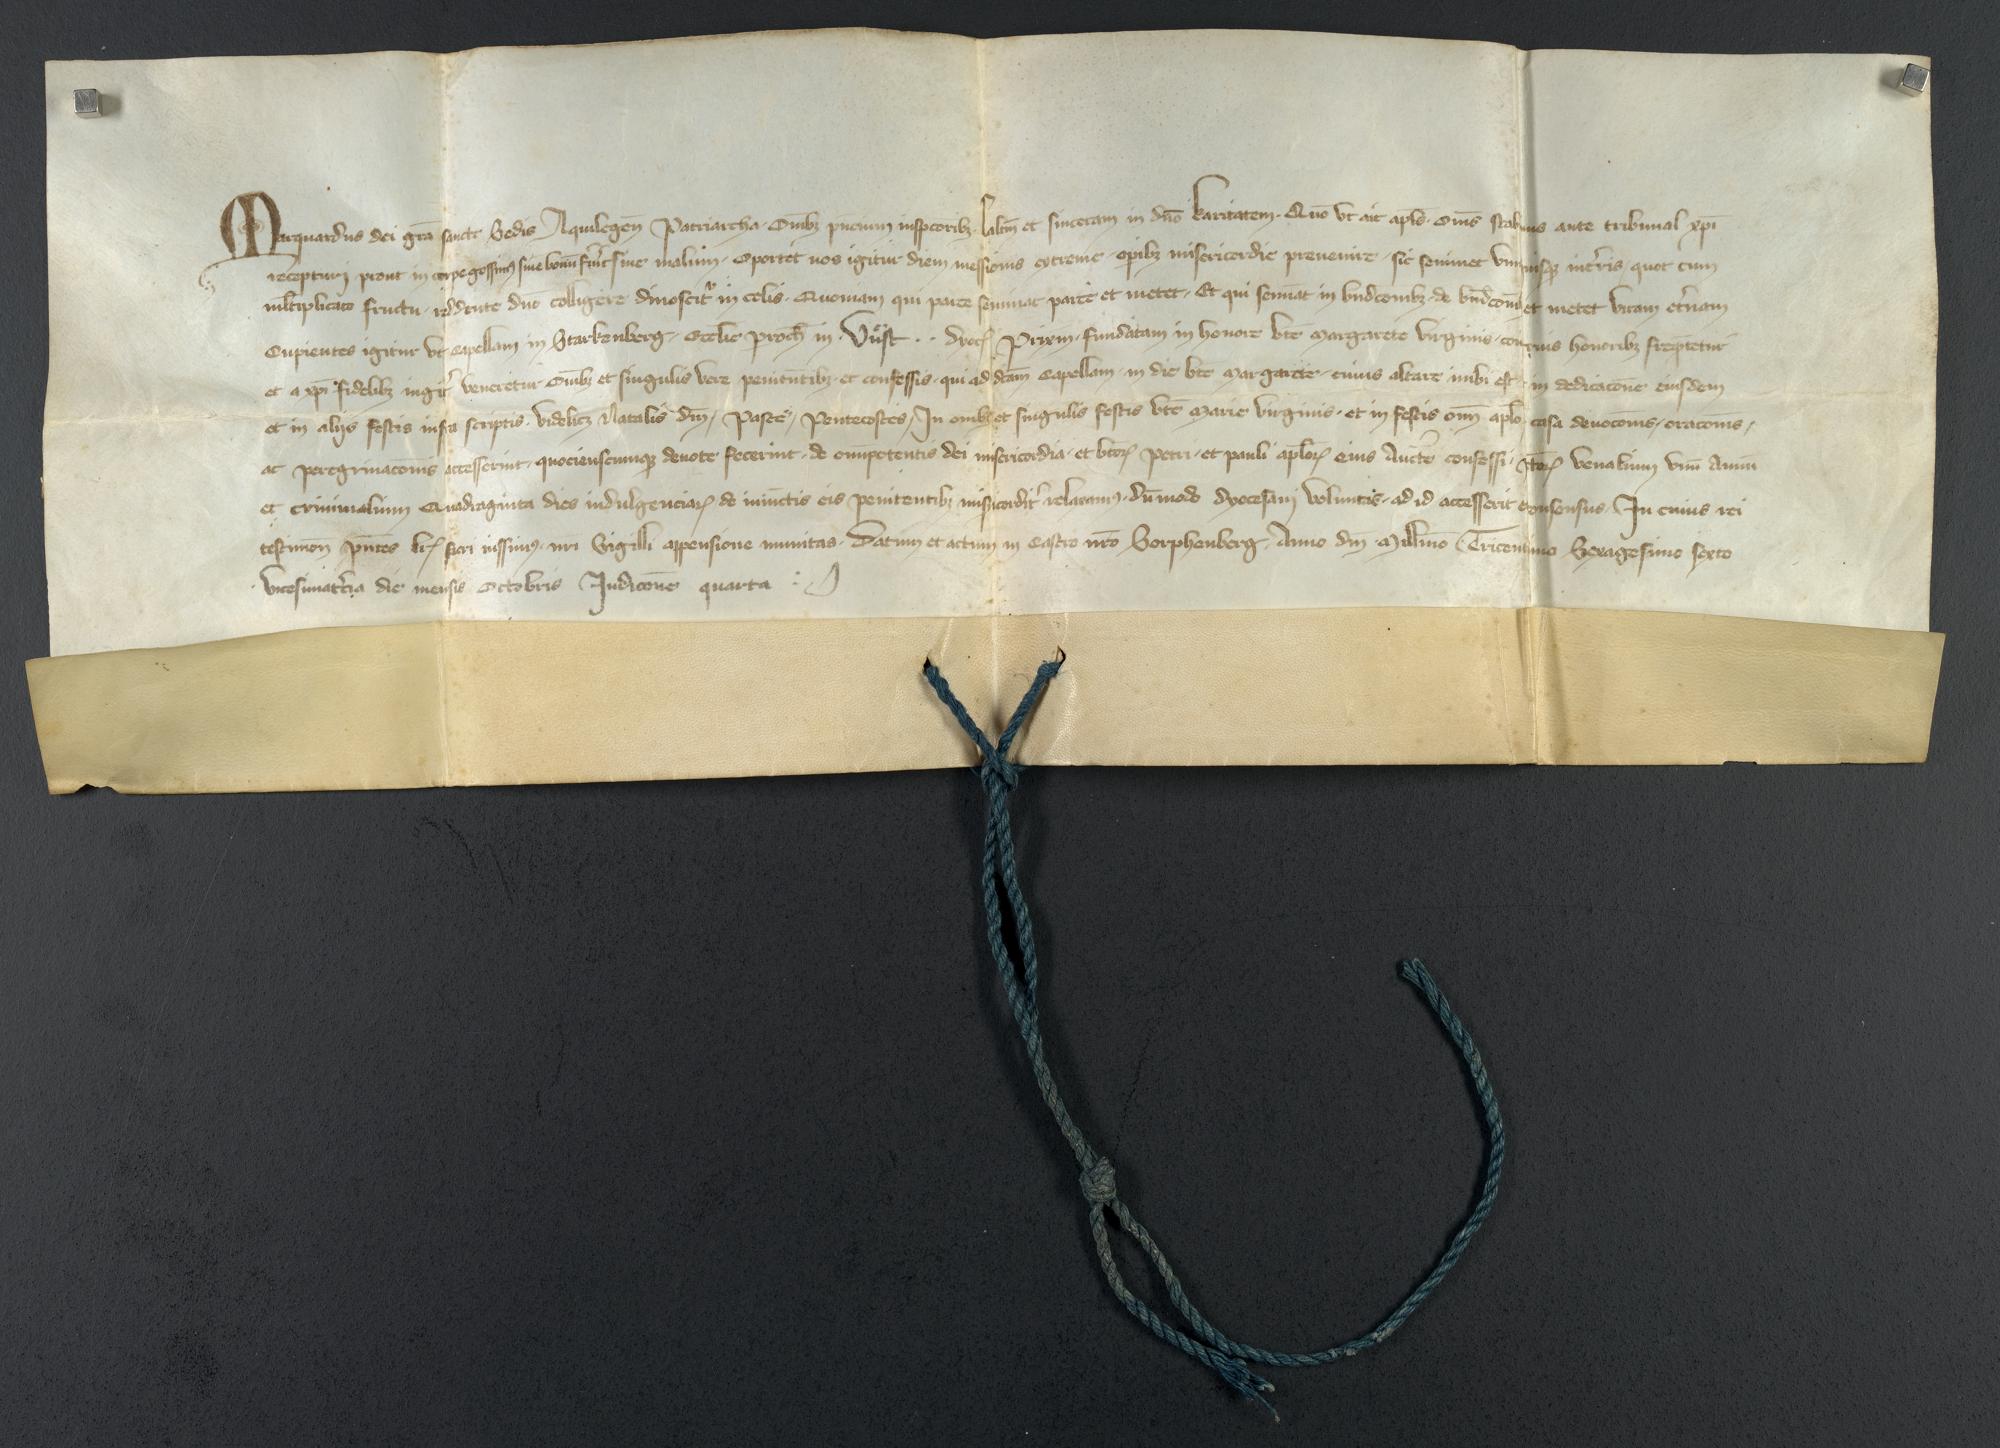 Marquardus dei gr̄a sancte Sedis Aquilegen̄ Patriarcha . Om̄ibꝫ pn̄cium inspectoribꝫ Salt̄m et sinceram in dn̄o karitatem . Quo vt ait apl̄s . Om̄s stabimus ante tribunal xp̄i
recepturi prout in corpe gessimꝰ siue bonū fu͛it siue malum . Oportet nos igitur diem messionis extreme . opibꝫ misericordie preuenire . sic seminet vnusqisqꝫ in t͛ris . quot cum
multiplicato fructu . reddente dn̄o colligere dinoscit͛ in celis . Quoniam qui parce seminat parce et metet . Et qui semīat in bn̄dictōibꝫ . de bn̄dictōibꝫ et metet vitam et͛nam
Cupientes igitur vt Capellam in Starkenberg . Ecclie proch̄ in Vüst . . dyocꝭ Prixin̄ . fundatam in honore bt̄e Margarete virginis . congruis honoribꝫ freq̄ntetur
et a xp̄i fidelibꝫ iugit͛ veneretur Om̄ibꝫ et singulis vere penitentibꝫ . et confessis . qui ad dc̄am Capellam . in die bt̄e Margarete . cuius altare inibi est . in dedicacōne eiusdem
et in alijs festis infra scriptis . videlicꝫ Natalis dn̄i / Pasce / Pentecostes / In om̄ibꝫ et singulis festis bt̄e Marie virginis . et in festis om̄i apl̄oꝝ causa deuocōnis . oracōnis /
ac peregrinacōnis accesserint . quocienscumqꝫ deuote fecerint . de om̄ipotentis dei misericordia . et bt̄oꝝ Petri . et pauli apl̄oꝝ eius Auct̄e confessi . venalium vnū Annū
et criminalium Quadraginta dies indulgenciaꝝ de iniunctis eis penitentibꝫ misericordit͛ relaxamꝰ . dūmodo dyocesani voluntas . ad id accesserit consensus . In cuius rei
testimon̄ pn̄tes lr̄ꝭ fieri iussimꝰ . nr̄i Sigilli appensione munitas . Datum et actum in Castro nr̄o Sorphenberg . Anno dn̄i Mill̄mo Tricentesimo Sexagesimo sexto
vicesimat͛cia die mensis Octobris Indicōne quarta